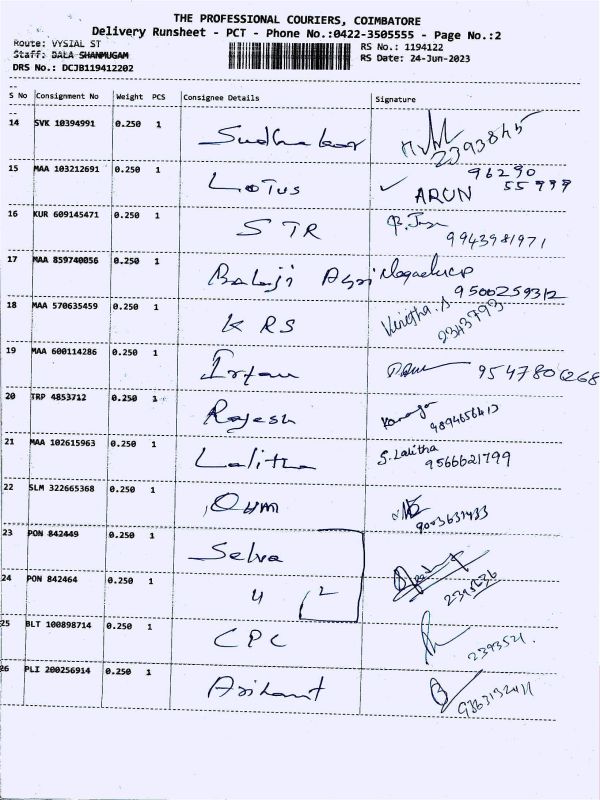 THE PROFESSIONAL COURIERS, COIMBATORE
Delivery Runsheet - PCT - Phone No.:0422-3505555 - Page No.:2
Route: VYSIAL ST
RS No.: 1194122
Staff: BALA SHANMUGAM
RS Date: 24-Jun-2023
DRS No.: DCJB119412202
S No Consignment No Weight PCS Consignee Details Signature
14 SVK 10394991 0.250 1 Sudhakar 2393845
15 MAA 103212691 0.250 1 Lotus ✓ ARUN 96290 55999
16 KUR 609145471 0.250 1 STR 9943981971
17 MAA 859740056 0.250 1 Balaji Agri 9500259312
18 MAA 570635459 0.250 1 KRS 2343793
19 MAA 600114286 0.250 1 Irfan 9547806268
20 TRP 4853712 0.250 1 Rajesh
21 MAA 102615963 0.250 1 Lalitha S. Lalitha 9566621799
22 SLM 322665368 0.250 1 Oum
23 PON 842449 0.250 1 Selva
24 PON 842464 0.250 1 4 2
25 BLT 100898714 0.250 1 CPC 2393521.
26 PLI 200256914 0.250 1 Arihant